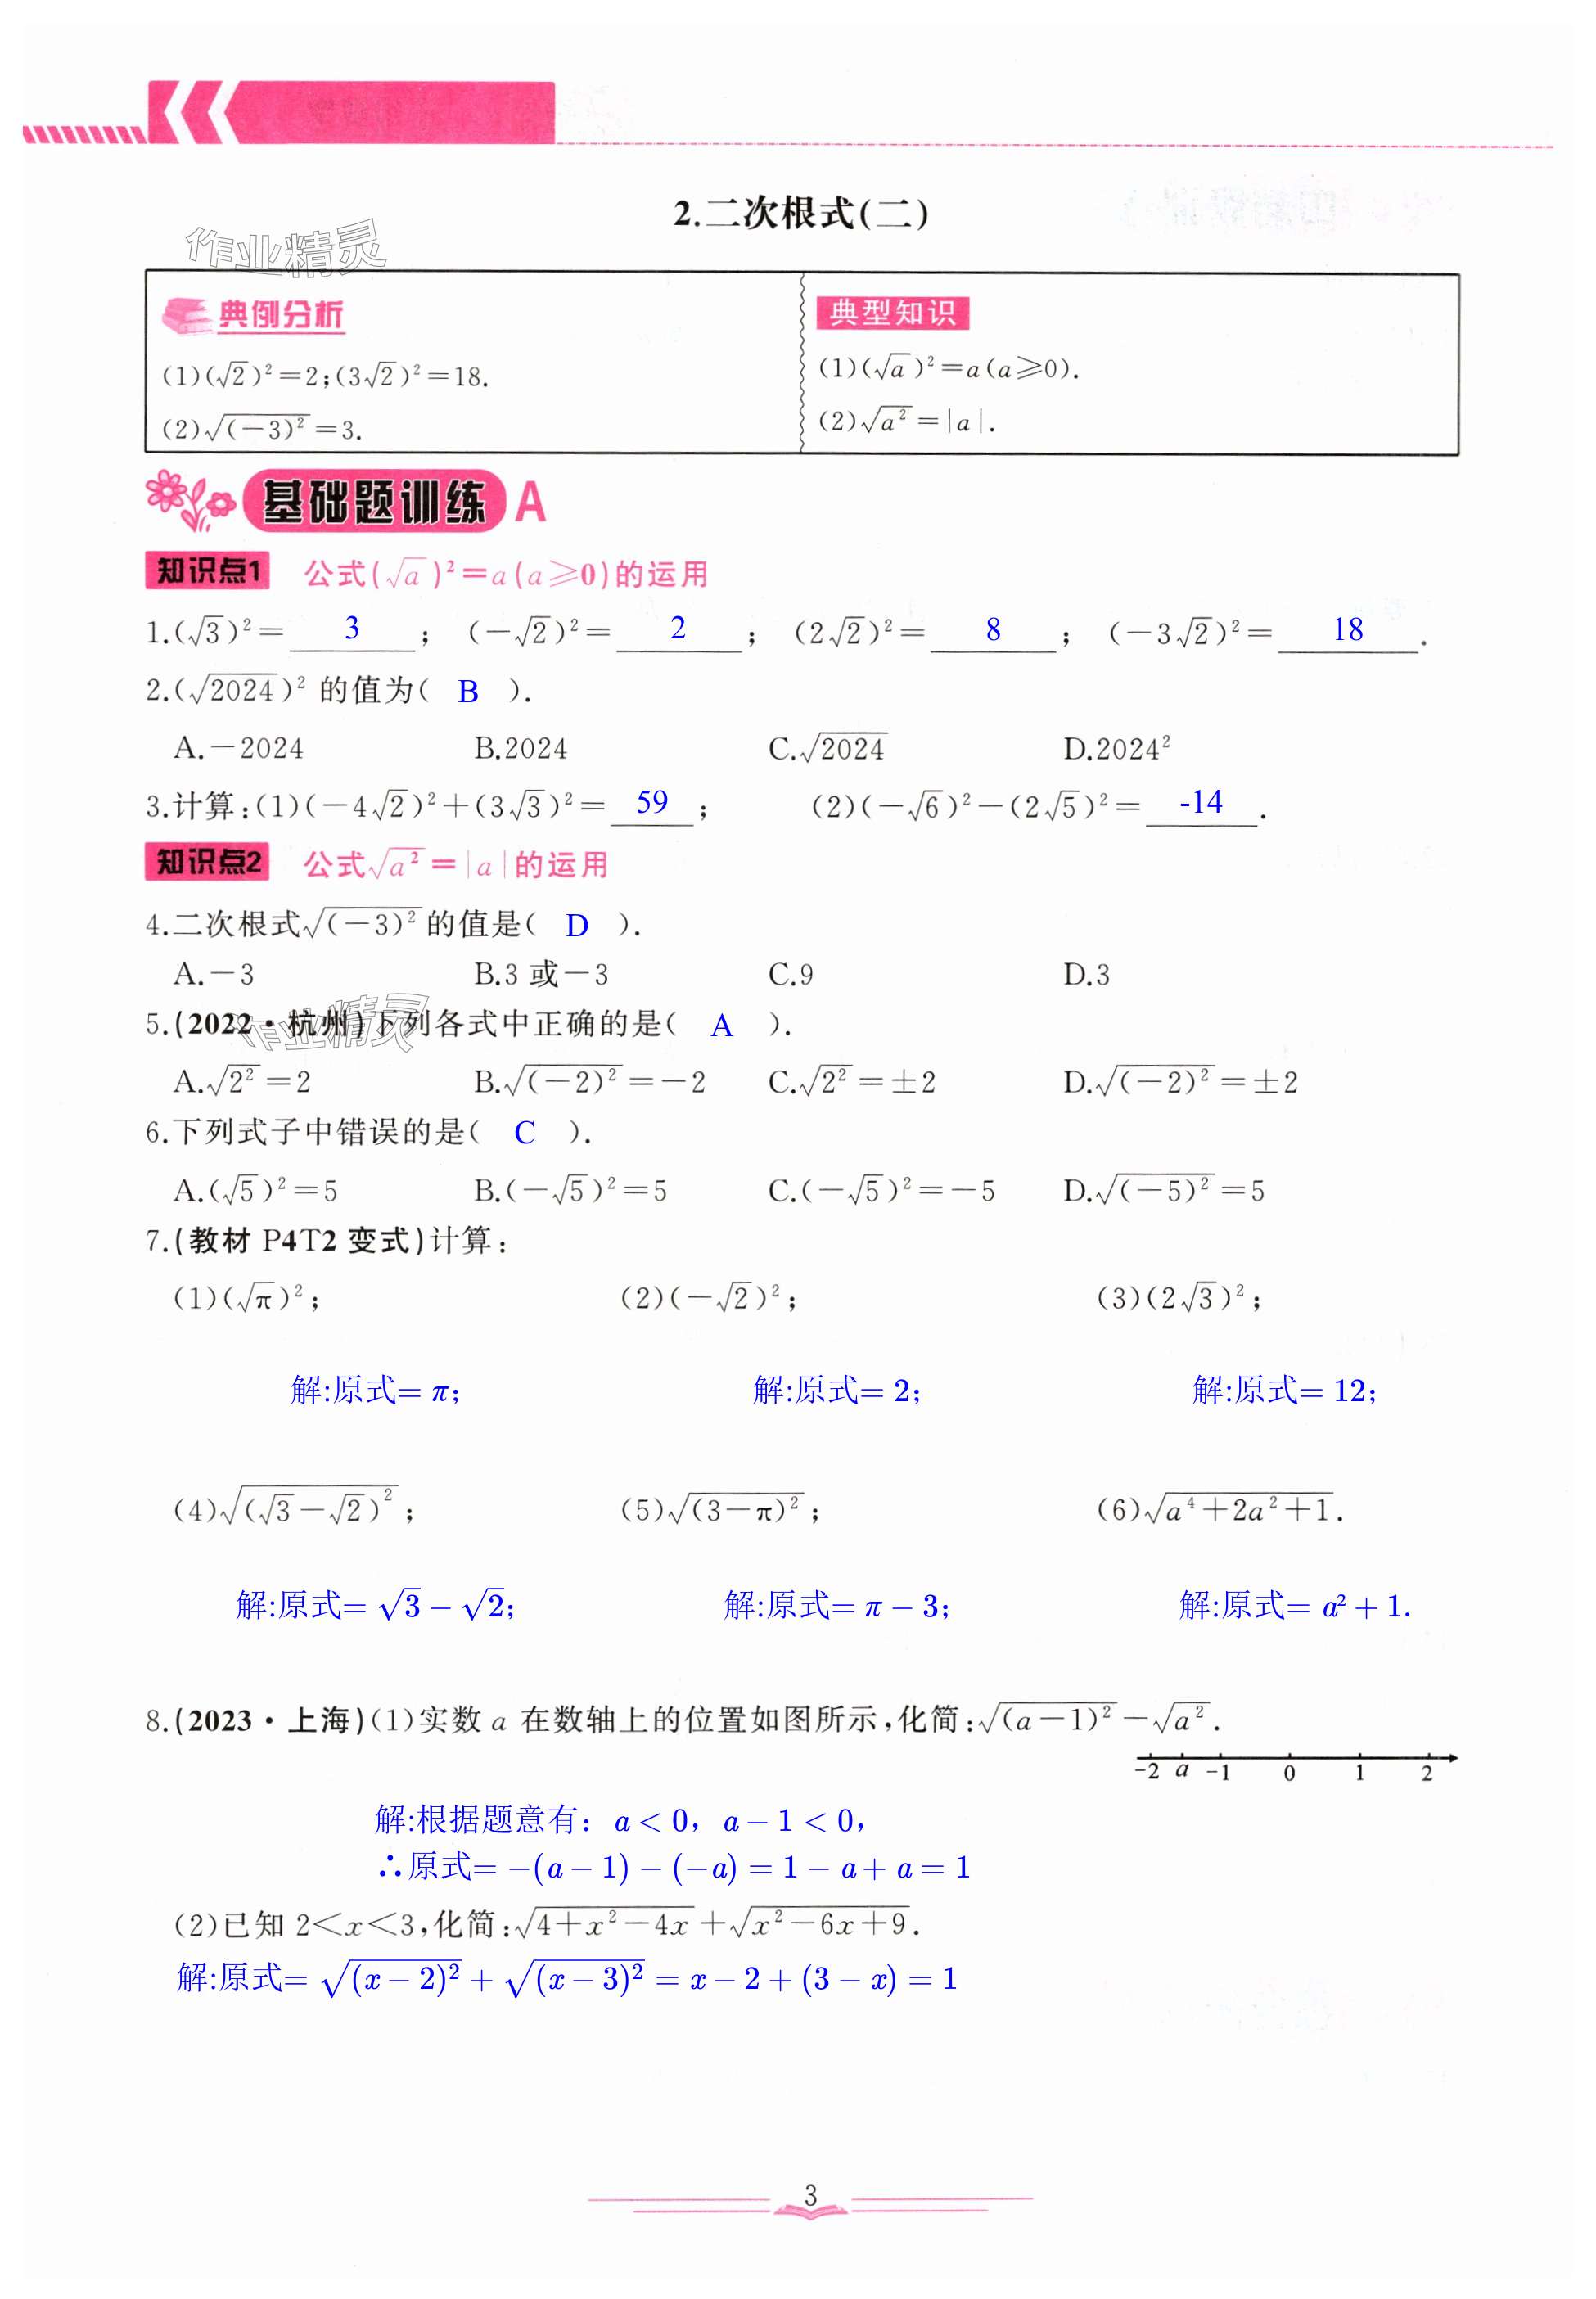 2.二次根式(二)
作业精灵
典例分析
(1)(√2)²=2;(3√2)²=18.
(2)√(-3)²=3.
典型知识
(1)(√a)²=a(a≥0).
(2)√a²=|a|.
基础题训练 A
知识点1 公式(√a)²=a(a≥0)的运用
1.(√3)²= 3 ; (-√2)²= 2 ; (2√2)²= 8 ; (-3√2)²= 18 .
2.(√2024)² 的值为( B ).
A.-2024 B.2024 C.√2024 D.2024²
3.计算:(1)(-4√2)²+(3√3)²= 59 ; (2)(-√6)²-(2√5)²= -14 .
知识点2 公式√a²=|a|的运用
4.二次根式√(-3)²的值是( D ).
A.-3 B.3 或-3 C.9 D.3
作业精灵
5.(2022·杭州)下列各式中正确的是( A ).
A.√2²=2 B.√(-2)²=-2 C.√2²=±2 D.√(-2)²=±2
6.下列式子中错误的是( C ).
A.(√5)²=5 B.(-√5)²=5 C.(-√5)²=-5 D.√(-5)²=5
7.(教材 P4T2 变式)计算:
(1)(√π)²; (2)(-√2)²; (3)(2√3)²;
解:原式= π; 解:原式= 2; 解:原式= 12;
(4)√(√3-√2)²; (5)√(3-π)²; (6)√a⁴+2a²+1.
解:原式= √3 - √2; 解:原式= π - 3; 解:原式= a² + 1.
8.(2023·上海)(1)实数 a 在数轴上的位置如图所示,化简:√(a-1)²-√a².
-2 a -1 0 1 2
解:根据题意有: a < 0, a - 1 < 0,
∴原式= -(a - 1) - (-a) = 1 - a + a = 1
(2)已知 2<x<3,化简:√4+x²-4x+√x²-6x+9.
解:原式= √(x - 2)² + √(x - 3)² = x - 2 + (3 - x) = 1
3